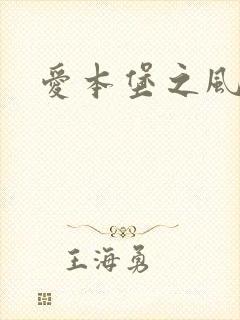 愛本堡之風
王海勇